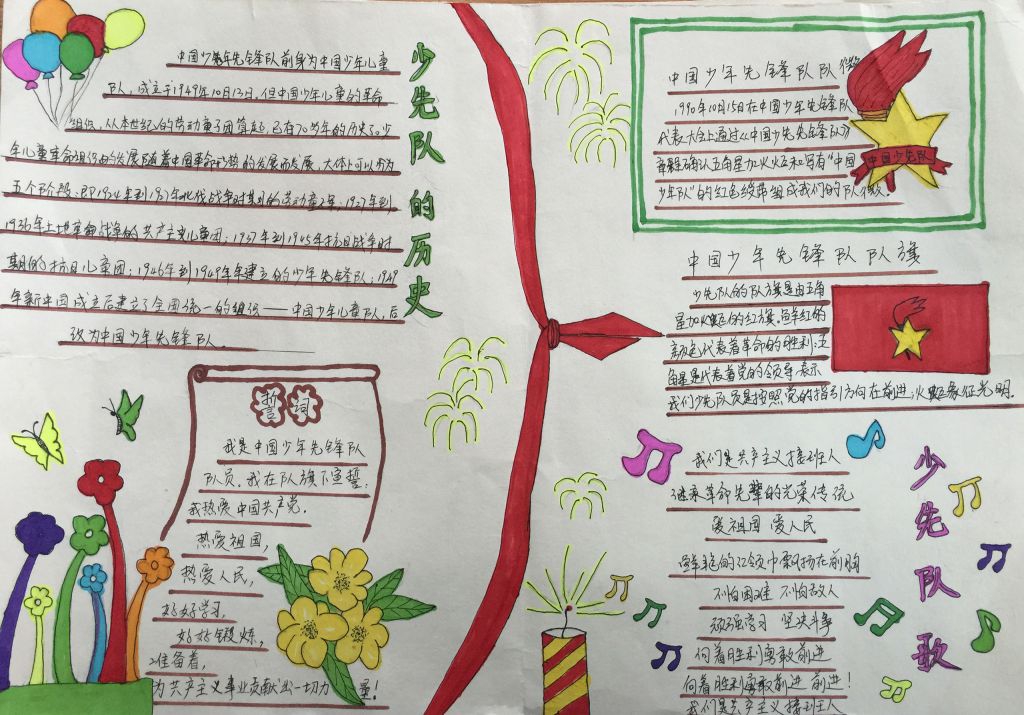 少先队的历史
中国少年先锋队前身为中国少年儿童
队，成立于1949年10月13日。但中国少年儿童的革命
组织，从本世纪的劳动童子团算起，已有70多年的历史了。少
年儿童革命组织的发展随着中国革命形势的发展而发展，大体上可以分为
五个阶段：即1924年到1927年北伐战争时期的劳动童子军；1927年到
1936年土地革命战争的共产主义儿童团；1937年到1945年抗日战争时
期的抗日儿童团；1946年到1949年年建立的少年先锋队；1949
年新中国成立后建立了全国统一的组织——中国少年儿童队，后
改为中国少年先锋队。
誓词
我是中国少年先锋队
队员。我在队旗下宣誓：
我热爱中国共产党，
热爱祖国，
热爱人民，
好好学习，
好好锻炼，
准备着，
为共产主义事业贡献出一切力量！
中国少年先锋队队徽
1990年10月15日在中国少年先锋队
代表大会上通过《中国少先先锋队》
章程确认五角星加火火巨和写有“中国
少年队”的红色绶带组成我们的队徽。
中国少先队
中国少年先锋队队旗
少先队的队旗是由五角
星加火炬的红旗。鲜红的
颜色代表着革命的胜利；五
角星是代表着党的领导 表示
我们少先队员是按照党的指引方向在前进；火炬象征光明。
少先队歌
我们是共产主义接班人
继承革命先辈的光荣传统
爱祖国 爱人民
鲜艳的红领巾飘扬在前胸
不怕困难 不怕敌人
顽强学习 坚决斗争
向着胜利勇敢前进
向着胜利勇敢前进 前进！
我们是共产主义接班人